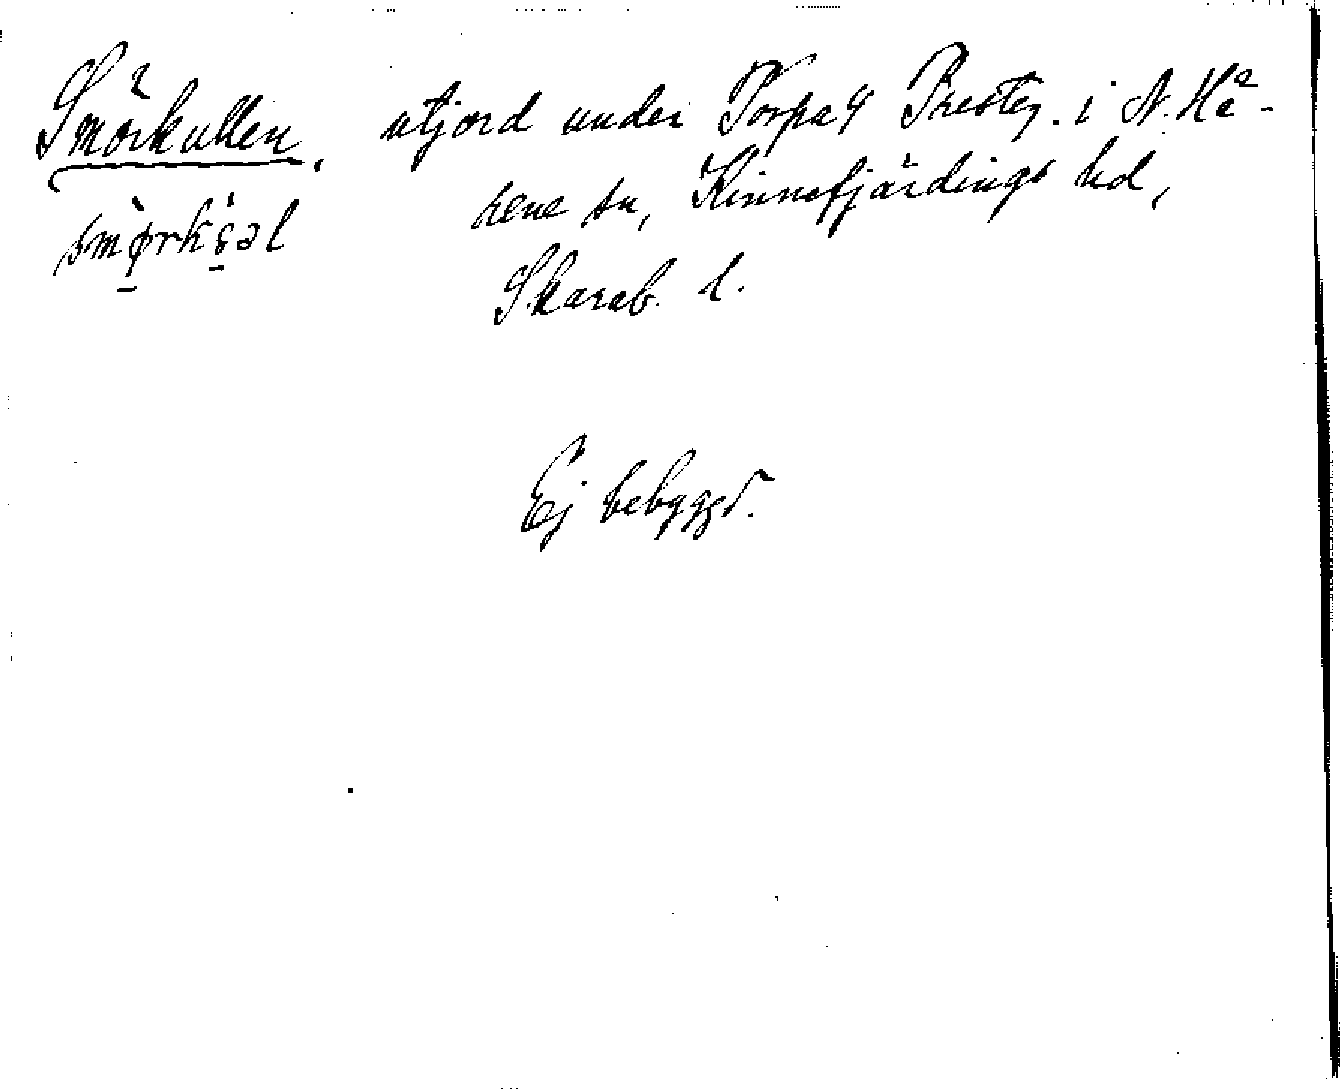 Smörkullen, utjord under Torpa 4 Presteg. i N. Hä-
rene sn, Kinnefjärdings hd,
Skarab. l.
Ej bebyggd.